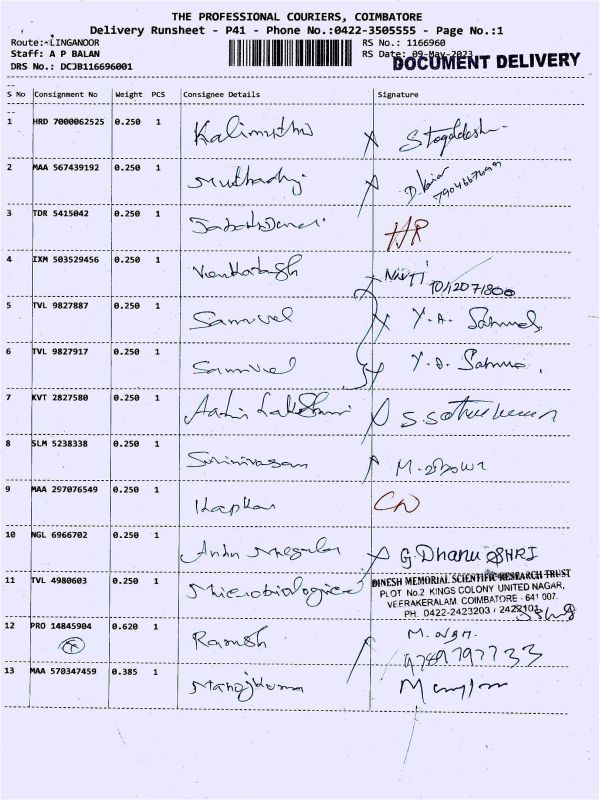 THE PROFESSIONAL COURIERS, COIMBATORE
Delivery Runsheet - P41 - Phone No.:0422-3505555 - Page No.:1
Route: LINGANOOR RS No.: 1166960
Staff: A P BALAN RS Date: 09-May-2023
DRS No.: DCJB116696001 DOCUMENT DELIVERY
S No Consignment No Weight PCS Consignee Details Signature
1 HRD 7000062525 0.250 1 Kalimuthu
2 MAA 567439192 0.250 1
3 TDR 5415042 0.250 1 HR
4 IXM 503529456 0.250 1 Venkatesh
5 TVL 9827887 0.250 1 Samuel Y. A. Samuel
6 TVL 9827917 0.250 1 Samuel Y. A. Samuel
7 KVT 2827580 0.250 1
8 SLM 5238338 0.250 1 Srinivasan M.
9 MAA 297076549 0.250 1
10 NGL 6966702 0.250 1 G. Dhanu SHRI
11 TVL 4980603 0.250 1 Microbiological DINESH MEMORIAL SCIENTIFIC RESEARCH TRUST
PLOT No.2 KINGS COLONY UNITED NAGAR,
VEERAKERALAM, COIMBATORE - 641 007.
PH. 0422-2423203 / 2422103
12 PRO 14845904 0.620 1 Ramesh M.
9789797733
13 MAA 570347459 0.385 1 Manojkumar